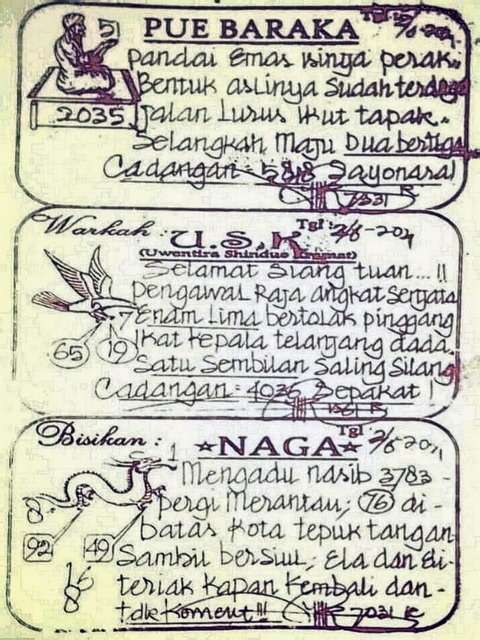 PUE BARAKA
Tgl
51
2035
Pandai Emas isinya perak..
Bentuk aslinya sudah
Jalan Lurus ikut tapak..
Selangkah Maju Dua bertiga
Cadangan = 588 Sayonara!
7331 R
Warkah :
U.S.K
Tgl 2/6-2011
(Uwentira Shindue Kramat)
Selamat Siang tuan...!!
Pengawal Raja angkat Senjata
Enam Lima bertolak pinggang
Ikat kepala telanjang dada.
Satu Sembilan Saling Silang
65 19
Cadangan = 4036 Sepakat!
Bisikan :
NAGA
Tgl 2/6-2011
Mengadu nasib 3783 -
pergi Merantau; 76 di -
batas kota tepuk tangan
Sambil bersiul; Ela dan Eli -
teriak kapan kembali dan -
tdk koment!!! 7031 R
1
8
92 49
8